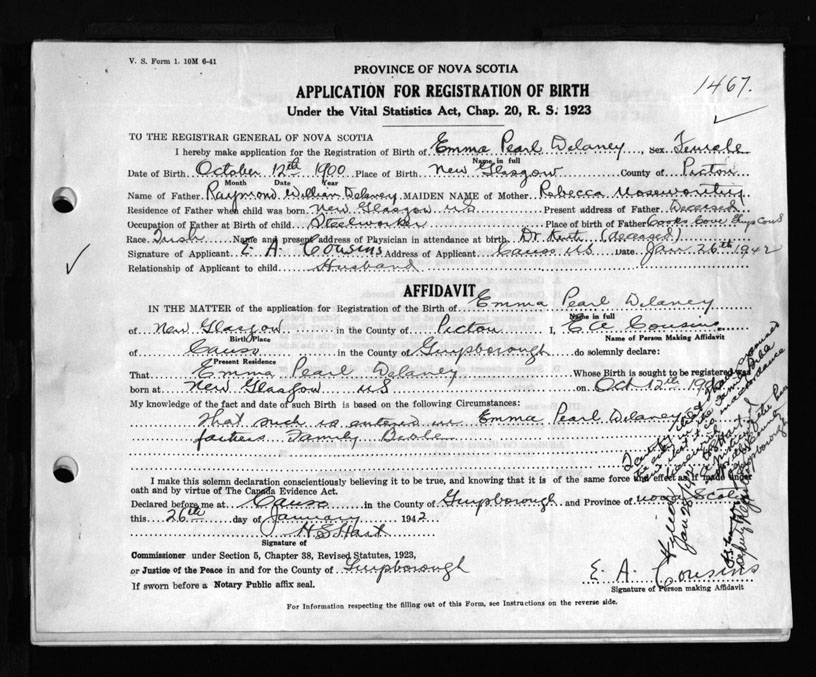 V. S. Form 1. 10M 6-41
PROVINCE OF NOVA SCOTIA
APPLICATION FOR REGISTRATION OF BIRTH
Under the Vital Statistics Act, Chap. 20, R. S. 1923
1467.
TO THE REGISTRAR GENERAL OF NOVA SCOTIA
I hereby make application for the Registration of Birth of Emma Pearl Delaney, Sex Female
Name in full
Date of Birth October 12th 1900 Place of Birth New Glasgow County of Pictou
Month Date Year
Name of Father Raymond William Delaney MAIDEN NAME of Mother Rebecca
Residence of Father when child was born New Glasgow NS Present address of Father Deceased
Occupation of Father at Birth of child Steelworker Place of birth of Father Cooks Cove Guys Co NS
Race Irish Name and present address of Physician in attendance at birth Dr Kent (deceased)
Signature of Applicant E. A. Cousins Address of Applicant Canso NS Date Jan 26th 1942
Relationship of Applicant to child Husband
AFFIDAVIT
IN THE MATTER of the application for Registration of the Birth of Emma Pearl Delaney
Name in full
of New Glasgow in the County of Pictou I, E A Cousins
Birth Place Name of Person Making Affidavit
of Canso in the County of Guysborough do solemnly declare:
Present Residence
That Emma Pearl Delaney Whose Birth is sought to be registered was
born at New Glasgow NS on Oct 12th 1900
My knowledge of the fact and date of such Birth is based on the following Circumstances:
That such is entered in Emma Pearl Delaney
fathers Family Bible
I make this solemn declaration conscientiously believing it to be true, and knowing that it is of the same force and effect as if made under
oath and by virtue of The Canada Evidence Act.
Declared before me at Canso in the County of Guysborough and Province of Nova Scotia
this 26th day of January 1942
H S Hart
Signature of
Commissioner under Section 5, Chapter 38, Revised Statutes, 1923,
or Justice of the Peace in and for the County of Guysborough
If sworn before a Notary Public affix seal.
E. A. Cousins
Signature of Person making Affidavit
For Information respecting the filling out of this Form, see Instructions on the reverse side.